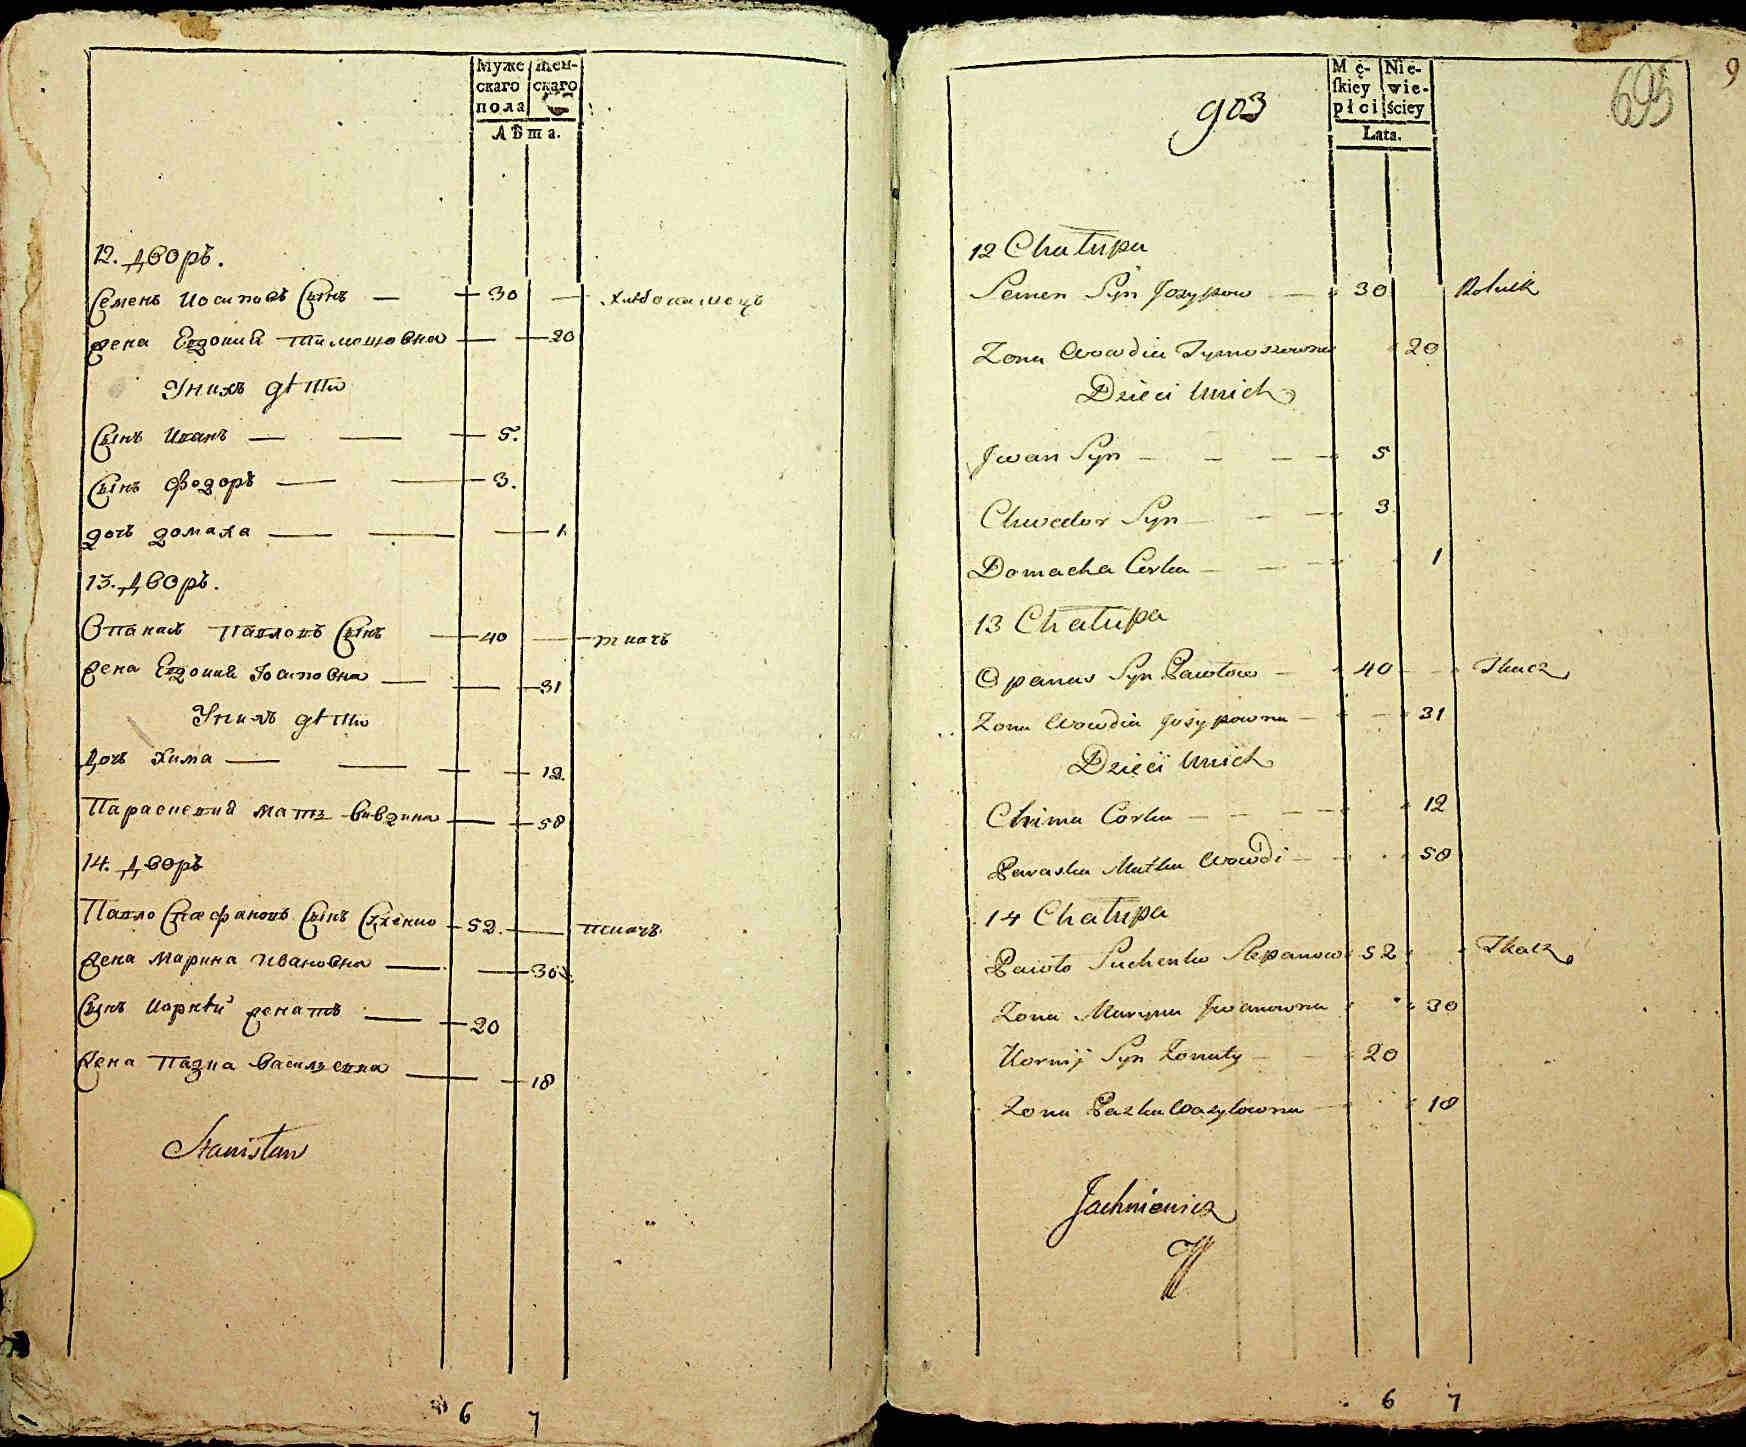 Муже
скаго
пола
Жен-
скаго
Лѣта.
12. дворъ.
Семенъ Иосиповъ Сынъ — 30 — хлѣбопашецъ
жена Евдокия Тимошовна — 20
Унихъ дѣти
Сынъ Иванъ — — 5.
Сынъ Федоръ — — 3.
дочь домаха — — 1.
13. дворъ.
Опанасъ Павловъ Сынъ — 40 — ткачъ
жена Евдокия Иосиповна — 31
Унихъ дѣти
Дочь Хима — — 12.
Параскевия мать Евдокии — 58
14. дворъ
Павло Стефановъ Сынъ — 52. — ткачъ
жена Марина Ивановна — 30
Сынъ Корнѣй женатъ — 20
Жена Пазка Васильевна — 18
Stanisław
6 7
903
Mę-
skiey
płci
Nie-
wie-
ściey
Lata.
695
9
12 Chałupa
Semen Syn Jozypow — 30 Rolnik
Zona Wowdia Tymoszowna 20
Dzieci Unich
Jwan Syn — — — 5
Chwedor Syn — — — 3
Domacha Corka — — — 1
13 Chałupa
Opanas Syn Pawłow — 40 — Tkacz
Zona Wowdia Josypowna — — 31
Dzieci Unich
Chima Corka — — — 12
Paraska Matka Wowdi — 58
14 Chałupa
Pawło Suchenko Stepanow 52 Tkacz
Zona Maryna Jwanowna 30
Kornij Syn Zonaty — 20
Zona Pazka Wasylowna — 18
Jachniewicz
6 7